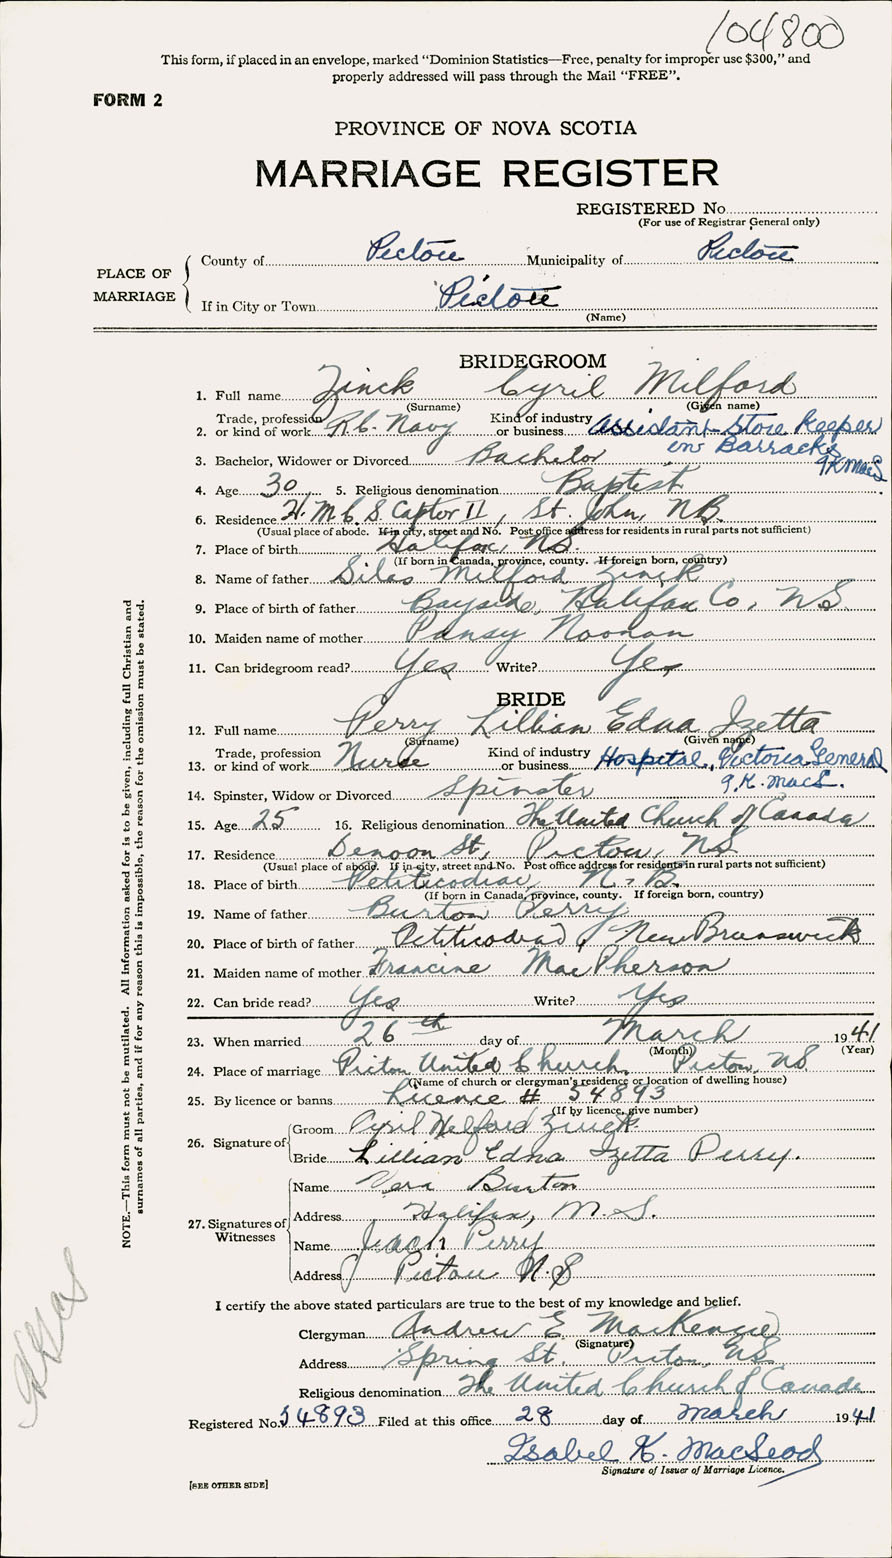 104800
This form, if placed in an envelope, marked "Dominion Statistics—Free, penalty for improper use $300," and
properly addressed will pass through the Mail "FREE".
FORM 2
PROVINCE OF NOVA SCOTIA
MARRIAGE REGISTER
REGISTERED No.
(For use of Registrar General only)
PLACE OF MARRIAGE
County of Pictou Municipality of Pictou
If in City or Town Pictou
(Name)
BRIDEGROOM
1. Full name Zinck Cyril Milford
(Surname) (Given name)
2. Trade, profession or kind of work R.C. Navy Kind of industry or business Assistant Store Keeper
in Barracks
I K MacS.
3. Bachelor, Widower or Divorced Bachelor
4. Age 30 5. Religious denomination Baptist
6. Residence H.M.C.S Captor II, St. John, N.B.
(Usual place of abode. If in city, street and No. Post office address for residents in rural parts not sufficient)
7. Place of birth Halifax, N.S.
(If born in Canada, province, county. If foreign born, country)
8. Name of father Silas Milford Zinck
9. Place of birth of father Bayside, Halifax Co, N.S.
10. Maiden name of mother Pansy Noonan
11. Can bridegroom read? Yes Write? Yes
BRIDE
12. Full name Perry Lillian Edna Izetta
(Surname) (Given name)
13. Trade, profession or kind of work Nurse Kind of industry or business Hospital, Victoria General
I.K. MacS.
14. Spinster, Widow or Divorced Spinster
15. Age 25 16. Religious denomination The United Church of Canada
17. Residence Denoon St, Pictou, N.S.
(Usual place of abode. If in city, street and No. Post office address for residents in rural parts not sufficient)
18. Place of birth Petiticodiac, N.B.
(If born in Canada, province, county. If foreign born, country)
19. Name of father Burton Perry
20. Place of birth of father Petiticodiac, New Brunswick
21. Maiden name of mother Francine MacPherson
22. Can bride read? Yes Write? Yes
23. When married 26th day of March 1941
(Month) (Year)
24. Place of marriage Pictou United Church, Pictou, NS
(Name of church or clergyman's residence or location of dwelling house)
25. By licence or banns Licence # 54893
(If by licence, give number)
26. Signature of
Groom Cyril Milford Zinck
Bride Lillian Edna Izetta Perry.
27. Signatures of Witnesses
Name Vera Burton
Address Halifax, N.S.
Name Perry
Address Pictou N.S
I certify the above stated particulars are true to the best of my knowledge and belief.
Clergyman Andrew E MacKenzie
(Signature)
Address Spring St. Pictou, NS
Religious denomination The United Church of Canada
Registered No. 54893 Filed at this office 28 day of March 1941
Isabel K. MacLeod
Signature of Issuer of Marriage Licence.
[SEE OTHER SIDE]
NOTE.—This form must not be mutilated. All information asked for is to be given, including full Christian and
surnames of all parties, and if for any reason this is impossible, the reason for the omission must be stated.